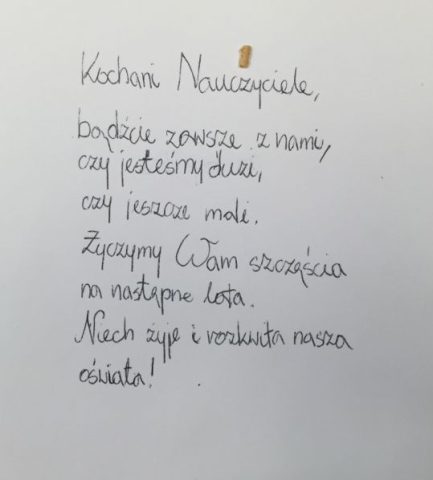 Kochani Nauczyciele,
bądźcie zawsze z nami,
czy jesteśmy duzi,
czy jeszcze mali.
Życzymy Wam szczęścia
na następne lata.
Niech żyje i rozkwita nasza
oświata!